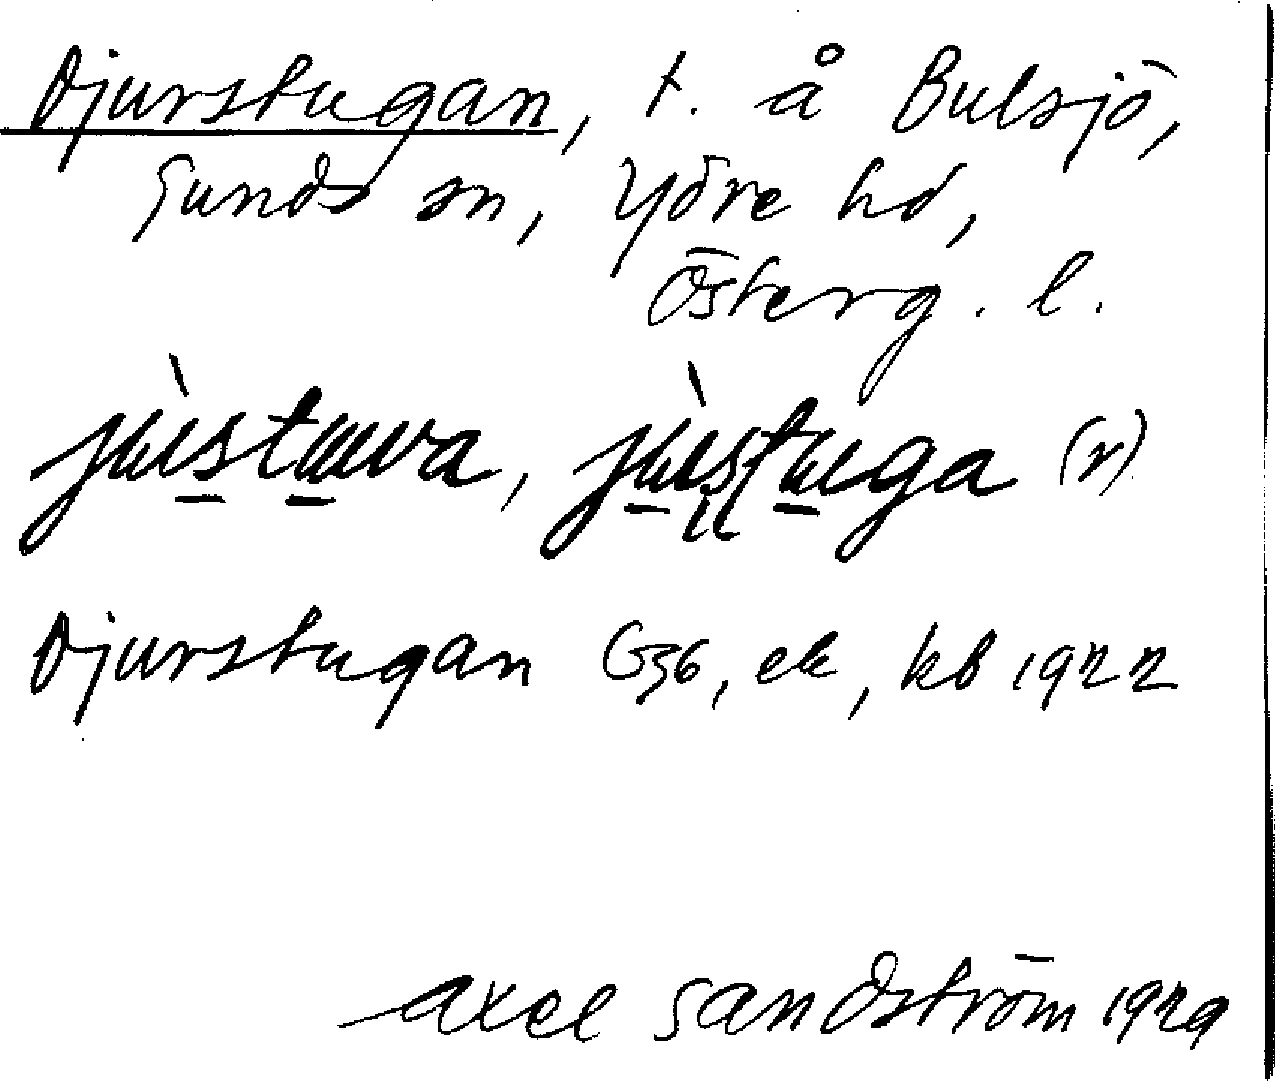 Djurstugan, t. å Bulsjö,
Sunds sn, Ydre hd,
Österg. l.
jùstuva, jùstuga (r)
Djurstugan G36, ek, kb 1922
Axel Sandström 1929